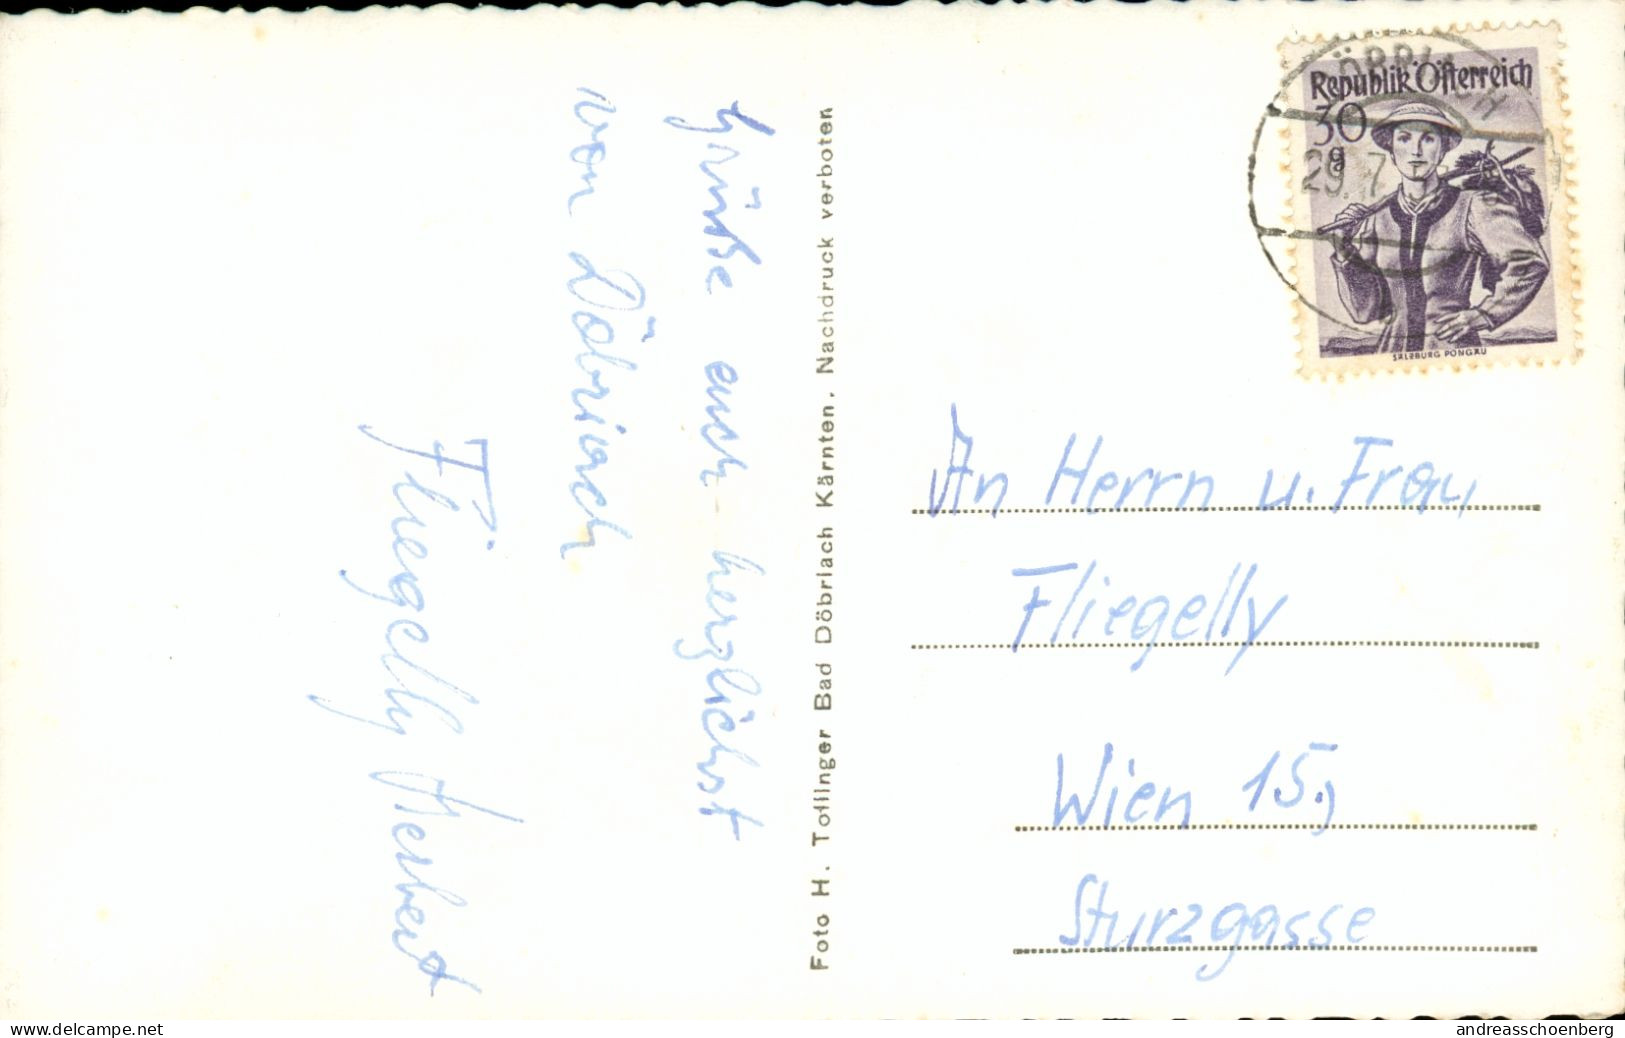 Grüße euch herzlichst
von Döbriach
Fliegelly Herbert
Foto H. Tollinger Bad Döbriach Kärnten. Nachdruck verboten
Republik Österreich
30
g
29. 7.
SALZBURG PONGAU
An Herrn u. Frau
Fliegelly
Wien 15.,
Sturzgasse
www.delcampe.net
andreasschoenberg